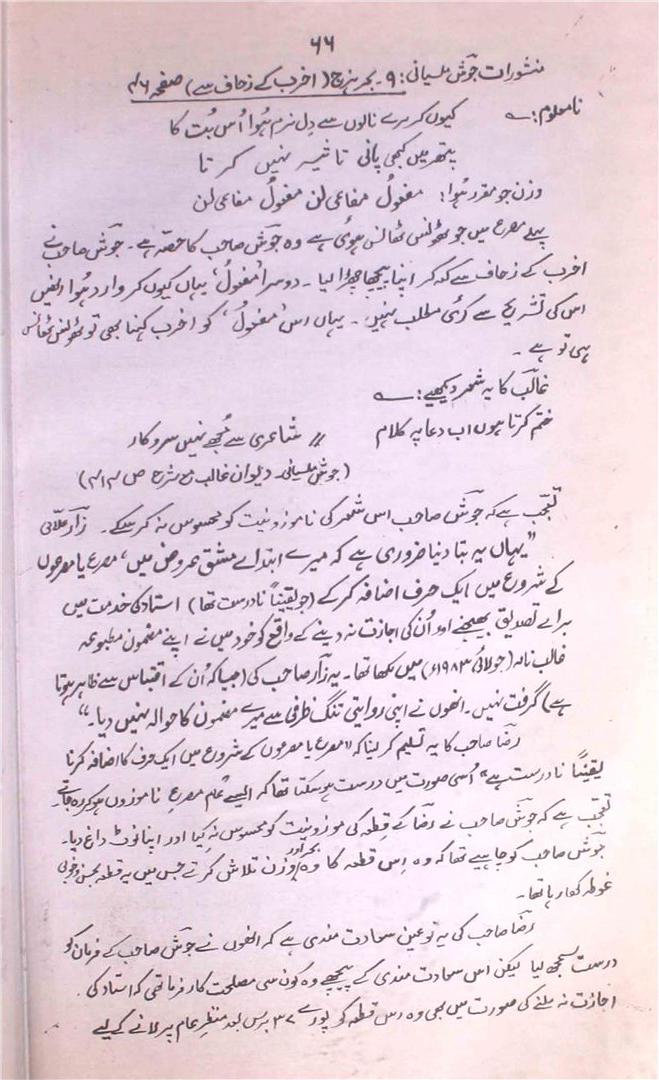 ۶۶
منشورات جوش ملسیانی: ۹۔ بحر ہزج (اخرب کے زحاف سے) صفحہ ۴۶
نامعلوم: کیوں کر مرے نالوں سے دِل نرم ہُوا اُس بُت کا
پتھر میں کبھی پانی تاثیر نہیں کرتا
وزن جو مقرر ہُوا: مفعولُ مفاعی لن مفعولُ مفاعی لن
پہلے مصرع میں جو ٹھونس ٹھانس ہوئی ہے وہ جوش صاحب کا حصّہ ہے۔ جوش صاحب نے
اخرب کے زحاف سے کہہ کر اپنا پیچھا چھڑا لیا۔ دوسرا ’مفعولُ‘ یہاں کیوں کر وارد ہُوا انھیں
اس کی تشریح سے کوئی مطلب نہیں۔ یہاں اس ’مفعولُ‘ کو اخرب کہنا بھی تو ٹھونس ٹھانس
ہی تو ہے۔
غالب کا یہ شعر دیکھیے:
ختم کرتا ہوں اب دعا پہ کلام // شاعری سے مجھے نہیں سروکار
(جوش ملسیانی۔ دیوان غالب مع شرح ص ۴۱۴)
تعجّب ہے کہ جوش صاحب اس شعر کی ناموزونیت کو محسوس نہ کر سکے۔ زار علّامی
”یہاں یہ بتا دینا ضروری ہے کہ میرے ابتداے مشق عروض میں، مصرع یا مصرعوں
کے شروع میں ایک حرف اضافہ کر کے (جو یقیناً نادرست تھا) استاد کی خدمت میں
براے تصدیق بھیجنے اور اُن کی اجازت نہ دینے کے واقع کو خود میں نے اپنے مضمون مطبوعہ
غالب نامہ (جولائی ۱۹۸۳ء) میں لکھا تھا۔ یہ زار صاحب کی (جیسا کہ اُن کے اقتباس سے ظاہر ہوتا
ہے) گرفت نہیں۔ انھوں نے اپنی روایتی تنگ ظرفی سے میرے مضمون کا حوالہ نہیں دیا۔“
رضا صاحب کا یہ تسلیم کر لینا کہ ”مصرع یا مصرعوں کے شروع میں ایک حرف کا اضافہ کرنا
یقیناً نادرست ہے“ اُسی صورت میں درست ہو سکتا تھا کہ ایسے تمام مصرعِ ناموزوں ہو کر رہ جاتے۔
تعجّب ہے کہ جوش صاحب نے رضا کے قطعہ کی موزونیت کو محسوس نہ کیا اور اپنا نوٹ داغ دیا۔
جوش صاحب کو چاہیے تھا کہ وہ اِس قطعہ کا وہ بحر اور وزن تلاش کرتے جس میں یہ قطعہ بحسن و خوبی
غوطہ کھا رہا تھا۔
رضا صاحب کی یہ تو عین سعادت مندی ہے کہ انھوں نے جوش صاحب کے فرمان کو
درست سمجھ لیا لیکن اس سعادت مندی کے پیچھے وہ کون سی مصلحت کارفرما تھی کہ استاد کی
اجازت نہ ملنے کی صورت میں بھی وہ اس قطعہ کو پورے ۳۷ برس بعد منظرِ عام پر لانے کے لیے